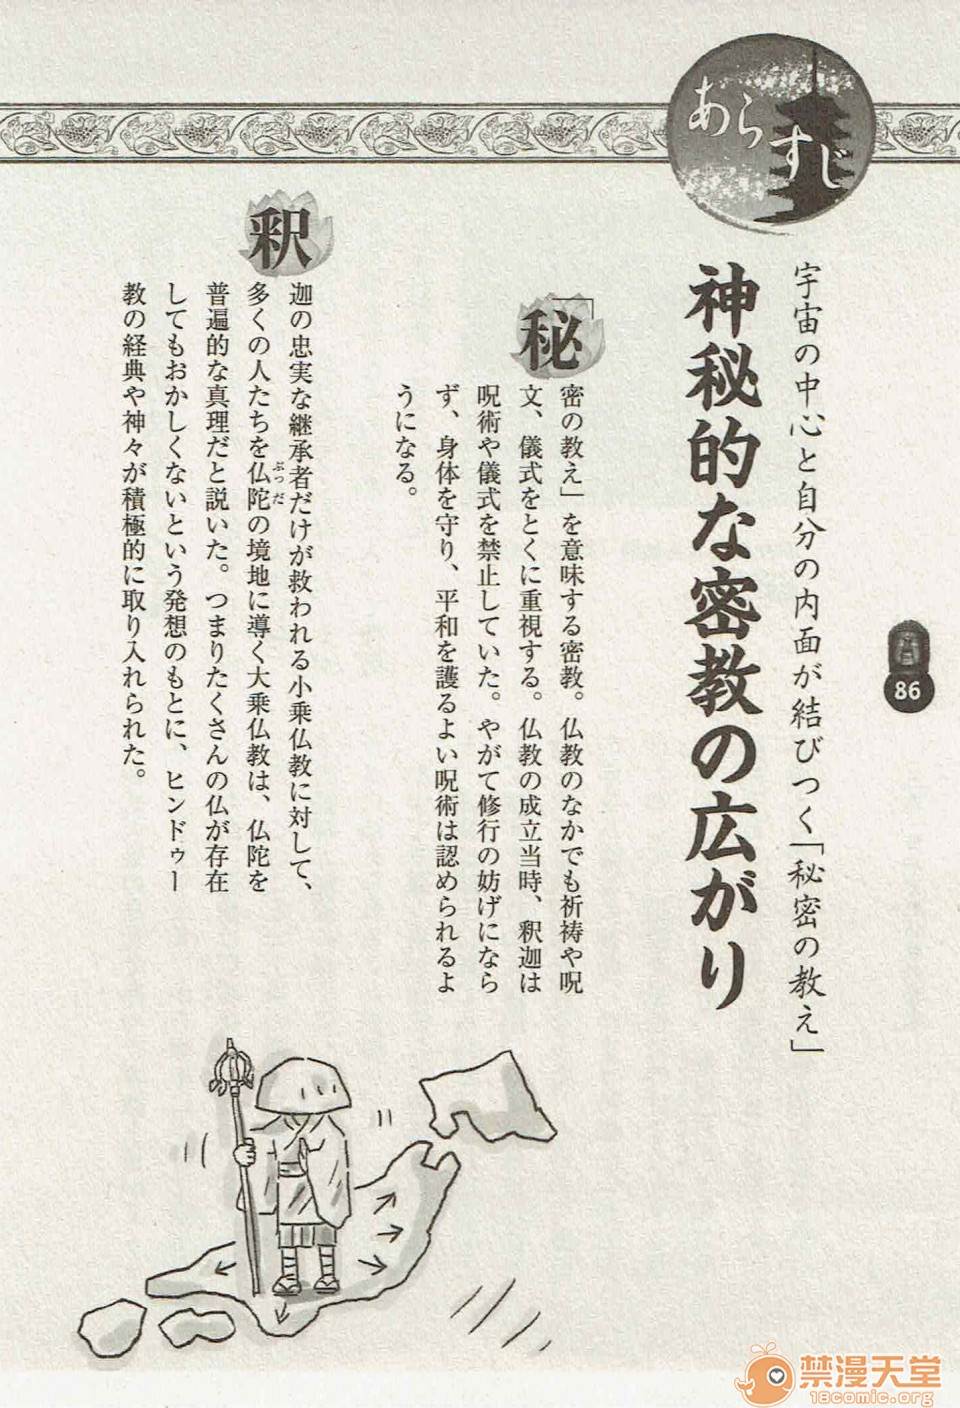 あらすじ
宇宙の中心と自分の内面が結びつく「秘密の教え」
神秘的な密教の広がり
「秘密の教え」を意味する密教。仏教のなかでも祈祷や呪
文、儀式をとくに重視する。仏教の成立当時、釈迦は
呪術や儀式を禁止していた。やがて修行の妨げになら
ず、身体を守り、平和を護るよい呪術は認められるよ
うになる。
釈迦の忠実な継承者だけが救われる小乗仏教に対して、
多くの人たちを仏陀の境地に導く大乗仏教は、仏陀を
ぶっだ
普遍的な真理だと説いた。つまりたくさんの仏が存在
してもおかしくないという発想のもとに、ヒンドゥー
教の経典や神々が積極的に取り入れられた。
86
禁漫天堂
18comic.org